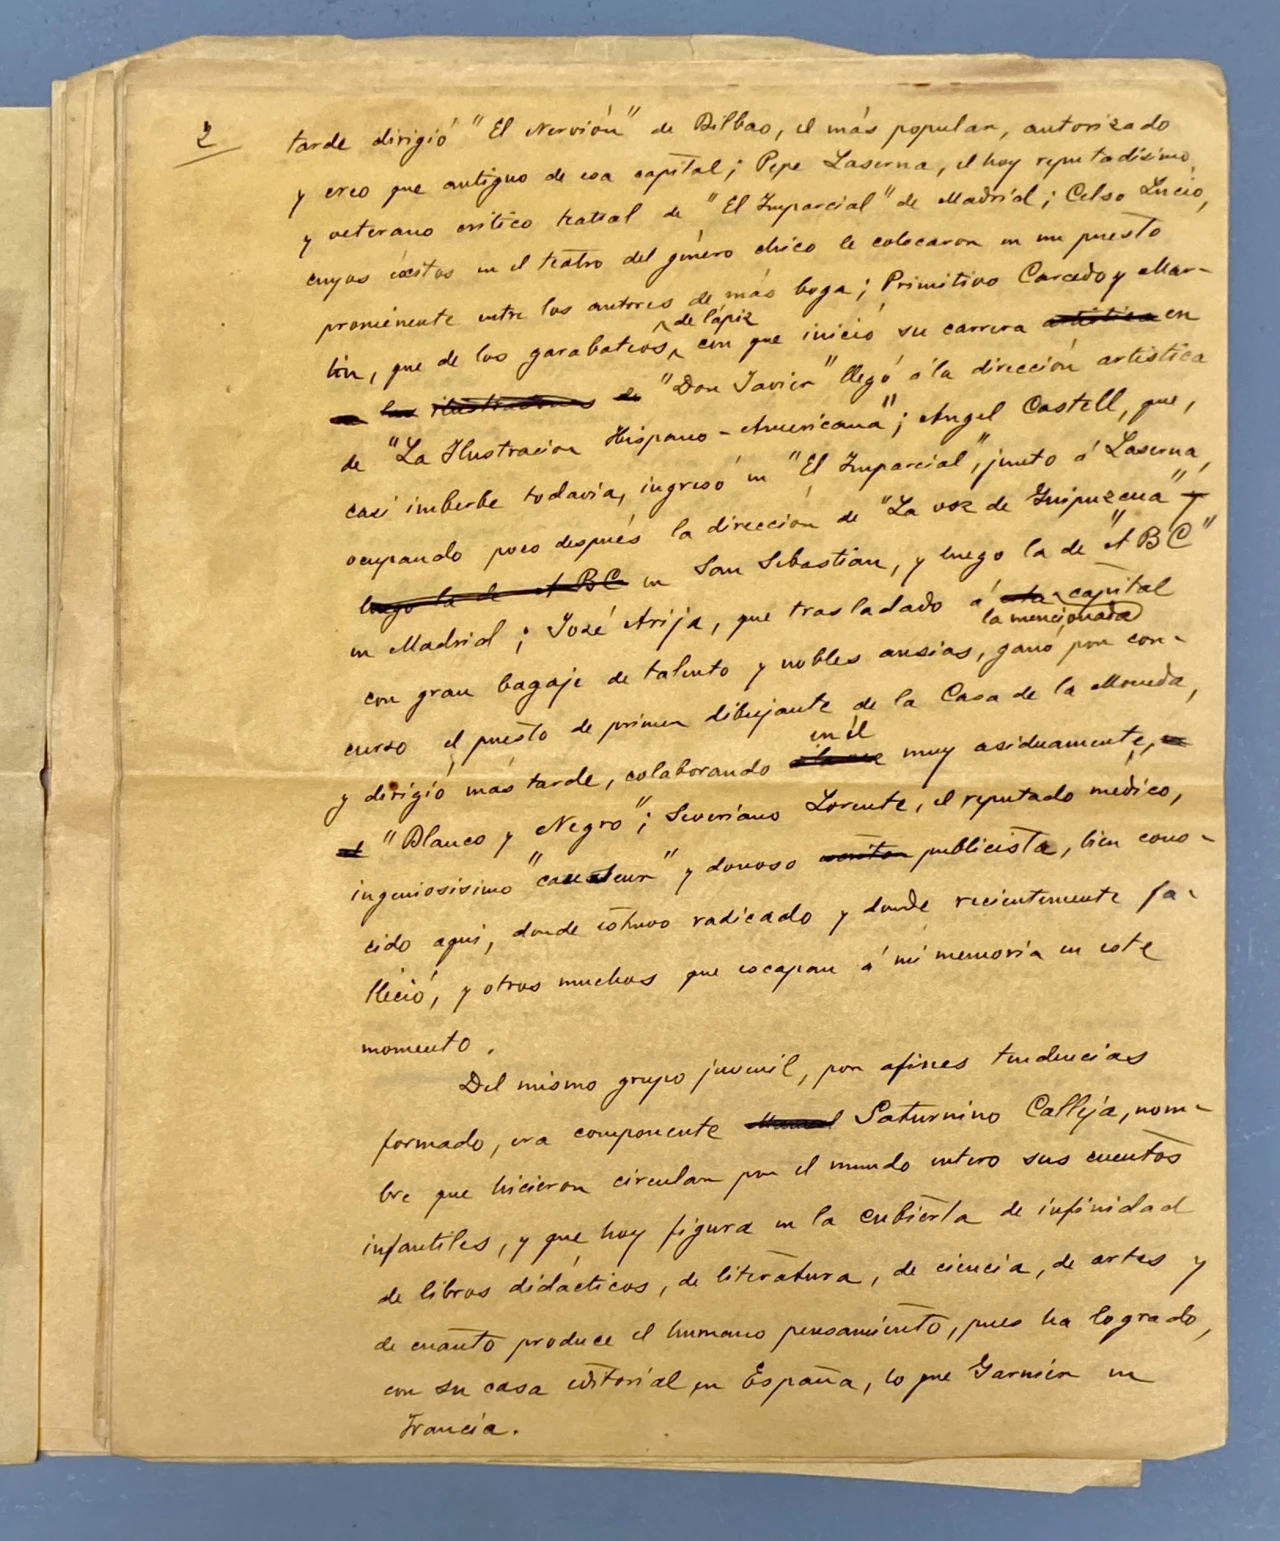 2
tarde dirigió "El Nervión" de Bilbao, el más popular, autorizado
y creo que antiguo de esa capital; Pepe Laserna, el hoy reputadísimo
y veterano crítico teatral de "El Imparcial" de Madrid; Celso Lucio,
cuyos éxitos en el teatro del género chico le colocaron en un puesto
prominente entre los autores de más boga; Primitivo Carcedo y Mar-
tín, que de los garabateos de lápiz con que inició su carrera artística en
los ilustradores de "Don Javier" llegó á la dirección artística
de "La Ilustracion Hispano-Americana"; Angel Castell, que,
casi imberbe todavía, ingresó en "El Imparcial", junto á Laserna,
ocupando poco después la dirección de "La voz de Guipuzcua" y
luego la de A B C en San Sebastian, y luego la de "A B C"
en Madrid; José Arija, que trasladado á esta capital
la mencionada
con gran bagaje de talento y nobles ansias, ganó por con-
curso el puesto de primer dibujante de la Casa de la Moneda,
y dirigió más tarde, colaborando en él muy asiduamente,
el "Blanco y Negro"; Severiano Lorente, el reputado médico,
ingeniosísimo "causeur" y donoso escritor publicista, bien cono-
cido aquí, donde estuvo radicado y donde recientemente fa-
lleció, y otros muchos que escapan á mi memoria en este
momento.
Del mismo grupo juvenil, por afines tendencias
formado, era componente Manuel Saturnino Calleja, nom-
bre que hicieron circular por el mundo entero sus cuentos
infantiles, y que hoy figura en la cubierta de infinidad
de libros didácticos, de literatura, de ciencia, de artes y
de cuanto produce el humano pensamiento, pues ha logrado,
con su casa editorial en España, lo que Garnier en
Francia.